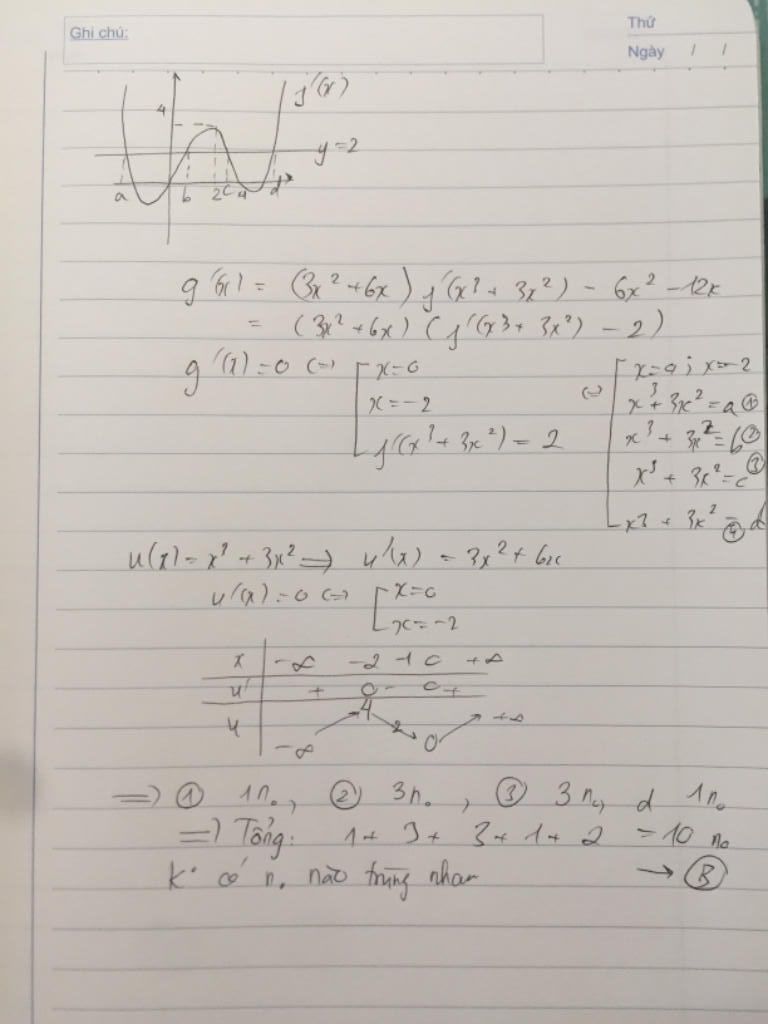 Ghi chú:
Thứ
Ngày / /
4
f'(x)
y = 2
a b 2 c 4 d
g'(x) = (3x² + 6x) f'(x³ + 3x²) - 6x² - 12x
= (3x² + 6x) (f'(x³ + 3x²) - 2)
g'(x) = 0 (=) [ x = 0
x = -2
f'(x³ + 3x²) = 2
(=) [ x = 0 ; x = -2
x³ + 3x² = a ①
x³ + 3x² = b ②
x³ + 3x² = c ③
x³ + 3x² = d ④
u(x) = x³ + 3x² => u'(x) = 3x² + 6x
u'(x) = 0 (=) [ x = 0
x = -2
x | -∞ -2 -1 0 +∞
u' | + 0 - 0 +
u | -∞ 4 2 0 +∞
=> ① 1 n₀, ② 3 n₀, ③ 3 n₀, d 1 n₀
=> Tổng: 1 + 3 + 3 + 1 + 2 = 10 n₀
K° có n₀ nào trùng nhau → Ⓑ